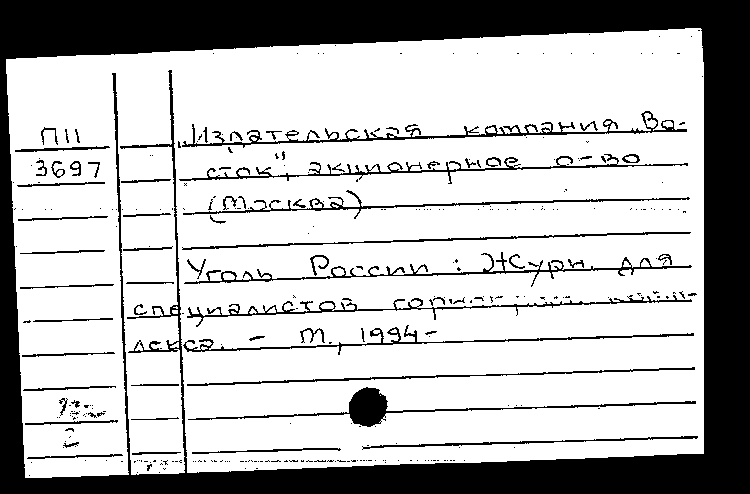 П11
3697
„Издательская компания „Во-
сток", акционерное о-во
(Москва)
Уголь России : Журн. для
специалистов горног
лекса. - М., 1994-
2